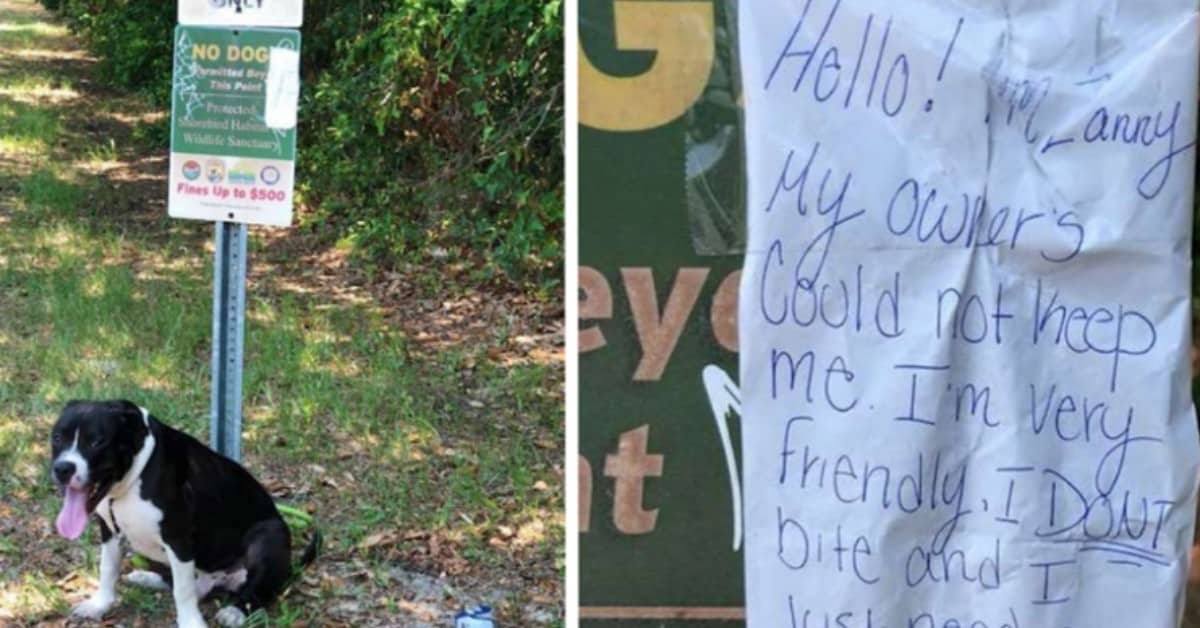 ONLY
NO DOG
Permitted Bey
This Point
Protected
Shorebird Habit
Wildlife Sanctuary
Fines Up to $500
G
eye
t
Hello! I'm Lanny
My owner's
Could not keep
me. I'm very
friendly. I DONT
bite and I
Just need